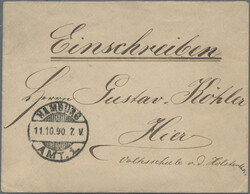 Einschreiben
Herrn Gustav Köhler
Hier
Volksschule v. d.
HAMBURG
11.10.90 7. V.
AMT. 1.